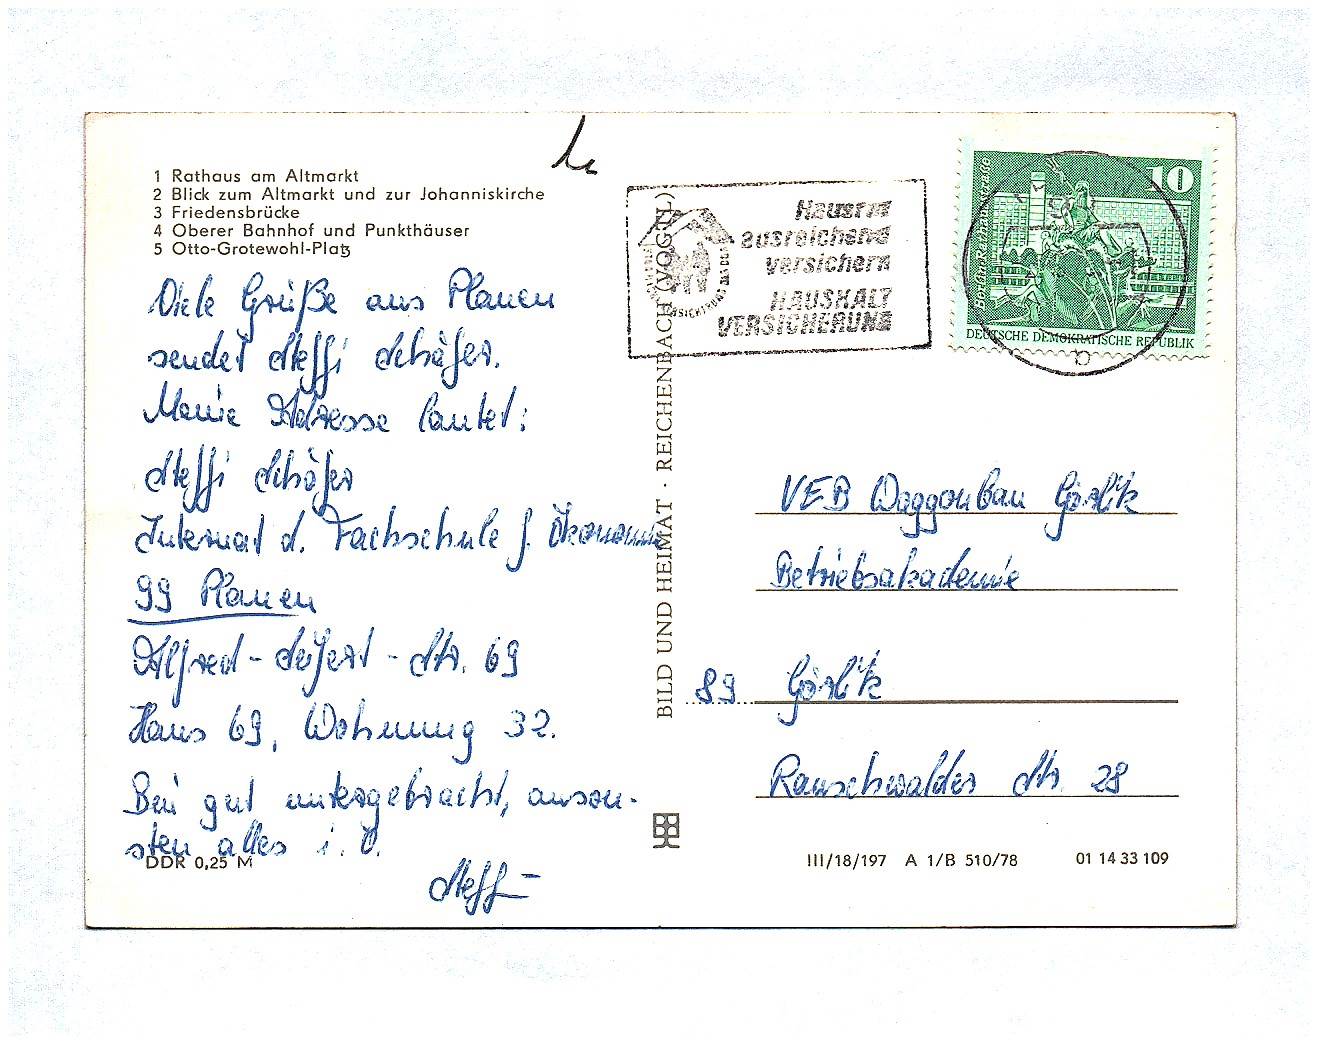 1 Rathaus am Altmarkt
2 Blick zum Altmarkt und zur Johanniskirche
3 Friedensbrücke
4 Oberer Bahnhof und Punkthäuser
5 Otto-Grotewohl-Platz
Viele Grüße aus Plauen
sendet Steffi Schäfer.
Meine Adresse lautet:
Steffi Schäfer
Internat d. Fachschule f. Ökonomie
99 Plauen
Alfred-Seifert-Str. 69
Haus 69, Wohnung 32.
Bin gut untergebracht, anson-
sten alles i. O.
Steffi
DDR 0,25 M
BILD UND HEIMAT · REICHENBACH (VOGTL)
Hausrat
ausreichend
versichern
HAUSHALT
VERSICHERUNG
10
DEUTSCHE DEMOKRATISCHE REPUBLIK
VEB Waggonbau Görlitz
Betriebsakademie
89 Görlitz
Rauschwalder Str. 28
III/18/197 A 1/B 510/78
01 14 33 109